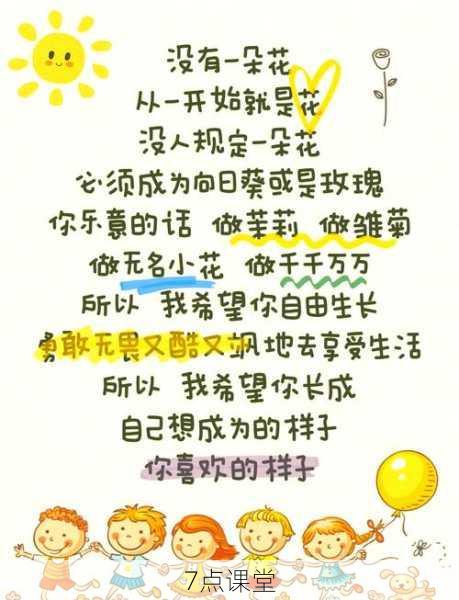 没有一朵花
从一开始就是花
没人规定一朵花
必须成为向日葵或是玫瑰
你乐意的话 做茉莉 做雏菊
做无名小花 做千千万万
所以 我希望你自由生长
勇敢无畏又酷又飒地去享受生活
所以 我希望你长成
自己想成为的样子
你喜欢的样子
7点课堂